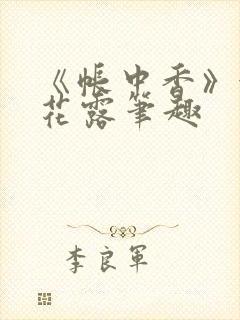 《帐中香》
花露笔趣
李良军